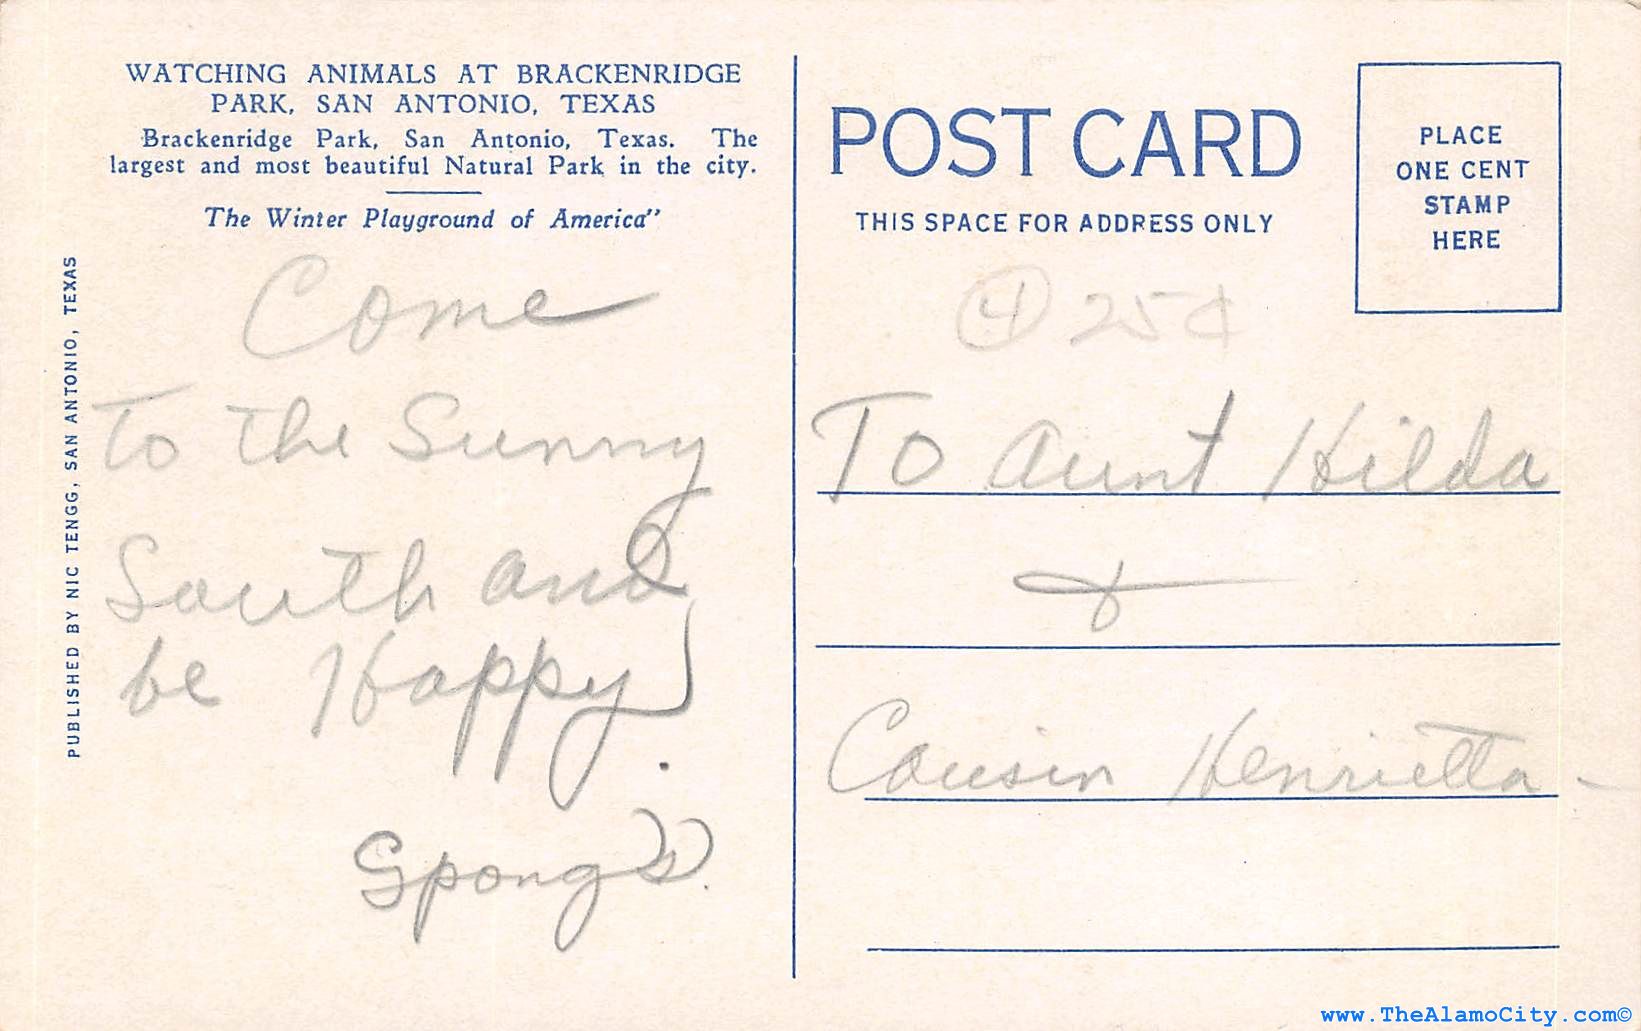 WATCHING ANIMALS AT BRACKENRIDGE
PARK, SAN ANTONIO, TEXAS
Brackenridge Park, San Antonio, Texas. The
largest and most beautiful Natural Park in the city.
The Winter Playground of America"
PUBLISHED BY NIC TENGG, SAN ANTONIO, TEXAS
Come
To the Sunny
South and
be Happy
.
Spong's
POST CARD
THIS SPACE FOR ADDRESS ONLY
PLACE
ONE CENT
STAMP
HERE
④ 25¢
To Aunt Hilda
+
Cousin Henrietta -
www.TheAlamoCity.com©